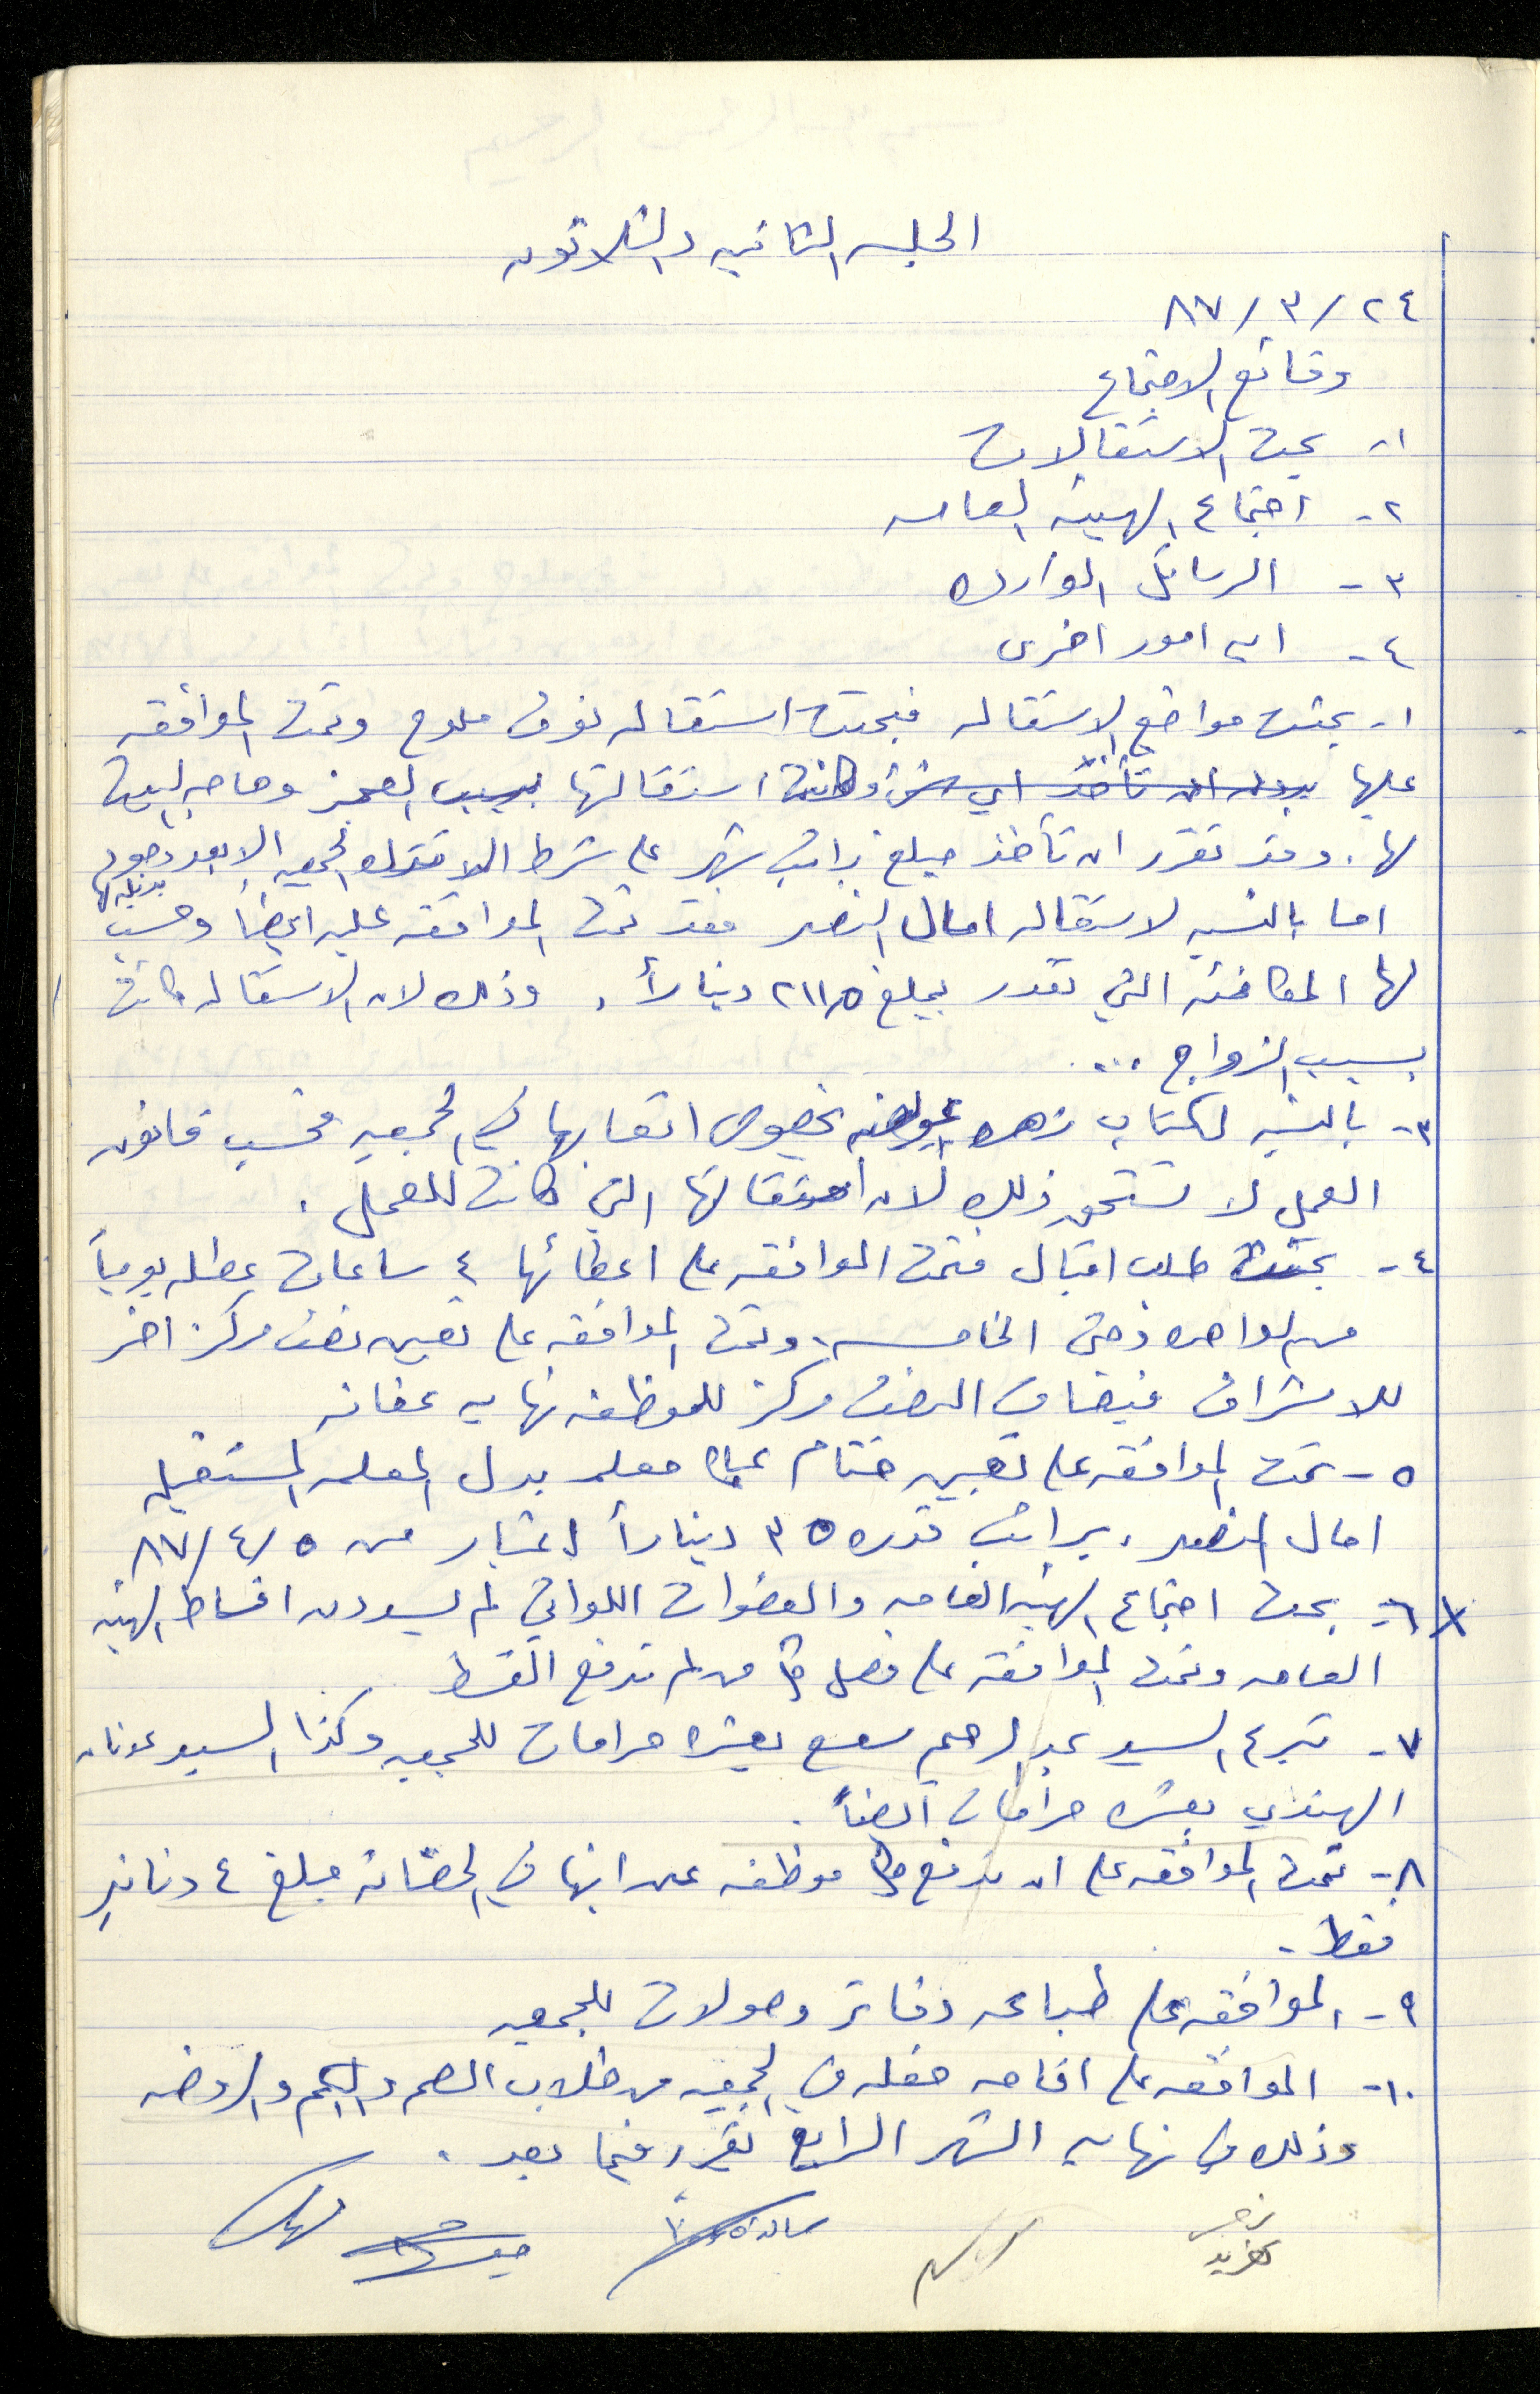 الجلسه الثانيه والثلاثون
٢٤ / ٣ / ٨٧
وقائع الاجتماع
١- بحث الاستقالات
٢- اجتماع الهيئه العامه
٣- الرسائل الوارده
٤- اي امور اخرى
١- بحثت مواضيع الاستقاله فبحثت استقاله نوف ملوح وتمت الموافقه
عليها بدون ان تأخذ اي وكانت استقالتها بسبب العجز وحاجه البيت
لها. وقد تقرر ان تأخذ مبلغ راتب شهر على شرط الجمعيه الا بعد وجود
بديله لها
اما بالنسبه لاستقاله امال النصر فقد تمت الموافقه عليه ايضاً وحسب
لها المكافئه التي تقدر بمبلغ ٢١١٫٥ ديناراً، وذلك لان الاستقاله كانت
بسبب الزواج ...
٣- بالنسبه لكتاب زهره بخصوص اتعابها في الجمعيه فحسب قانون
العمل لا تستحق ذلك لان استقالتها التي كانت للعمل.
٤- بحثت طلب اقبال فتمت الموافقه على اعطائها ٤ ساعات عطله يومياً
من الواحده وحتى الخامسه، وتمت الموافقه على تعيين نصف مركز اخر
للاشراف فيضاف النصف مركز للموظفه نهايه عفانه
٥- تمت الموافقه على تعيين ختام معلمه بدل المعلمه المستقيله
امال النصر، براتب قدره ٣٥ ديناراً اعتبار من ٥/٤/٨٧
٦- بحث اجتماع الهيئه العامه والعضوات اللواتي لم يسددن اقساط الهيئه
العامه وتمت الموافقه على فصل كل من لم تدفع القسط
٧- تبرع السيد عبد الرحيم بعشره حرامات للجمعيه وكذا السيد عدنان
الهندي بعشره حرامات ايضاً.
٨- تمت الموافقه على ان تدفع كل موظفه عن ابنها في الحضانه مبلغ ٤ دنانير
فقط.
٩- الموافقه على طباعه دفاتر وصولات للجمعيه
١٠- الموافقه على اقامه حفله في الجمعيه من طلاب الصم والبكم والروضه
وذلك في نهايه الشهر الرابع تقرر فيما بعد.